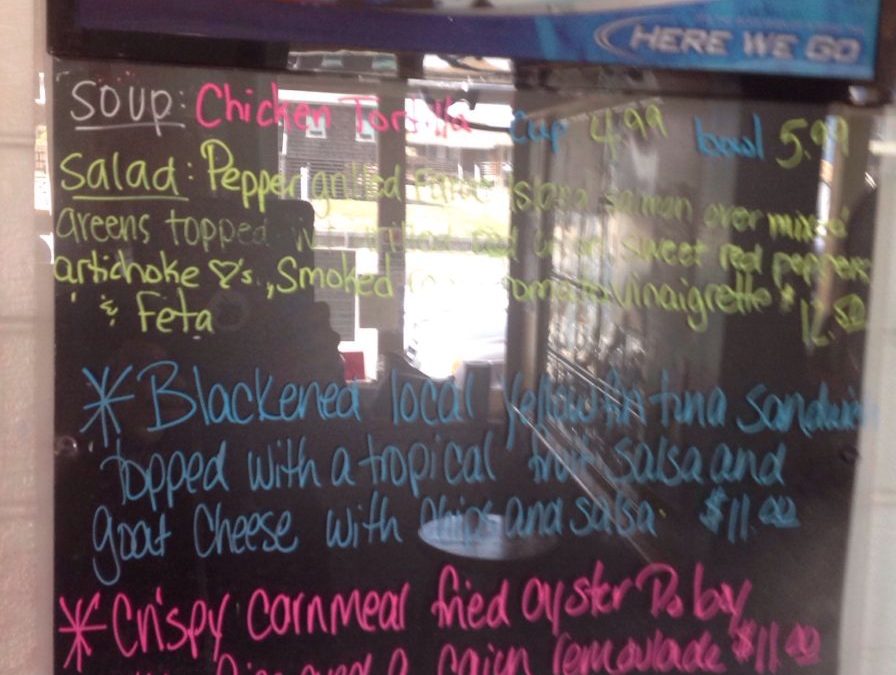 HERE WE GO
Soup: Chicken Tortilla Cup 4.99 bowl 5.99
Salad: Pepper grilled salmon over mixed
Greens topped sweet red peppers
artichoke ♡'s, Smoked vinaigrette $12.50
& Feta
* Blackened local yellowfin tuna sandwich
topped with a tropical fruit salsa and
goat cheese with chips and salsa $11.00
* Crispy cornmeal fried oyster Po boy
and a cajun remoulade $11.00